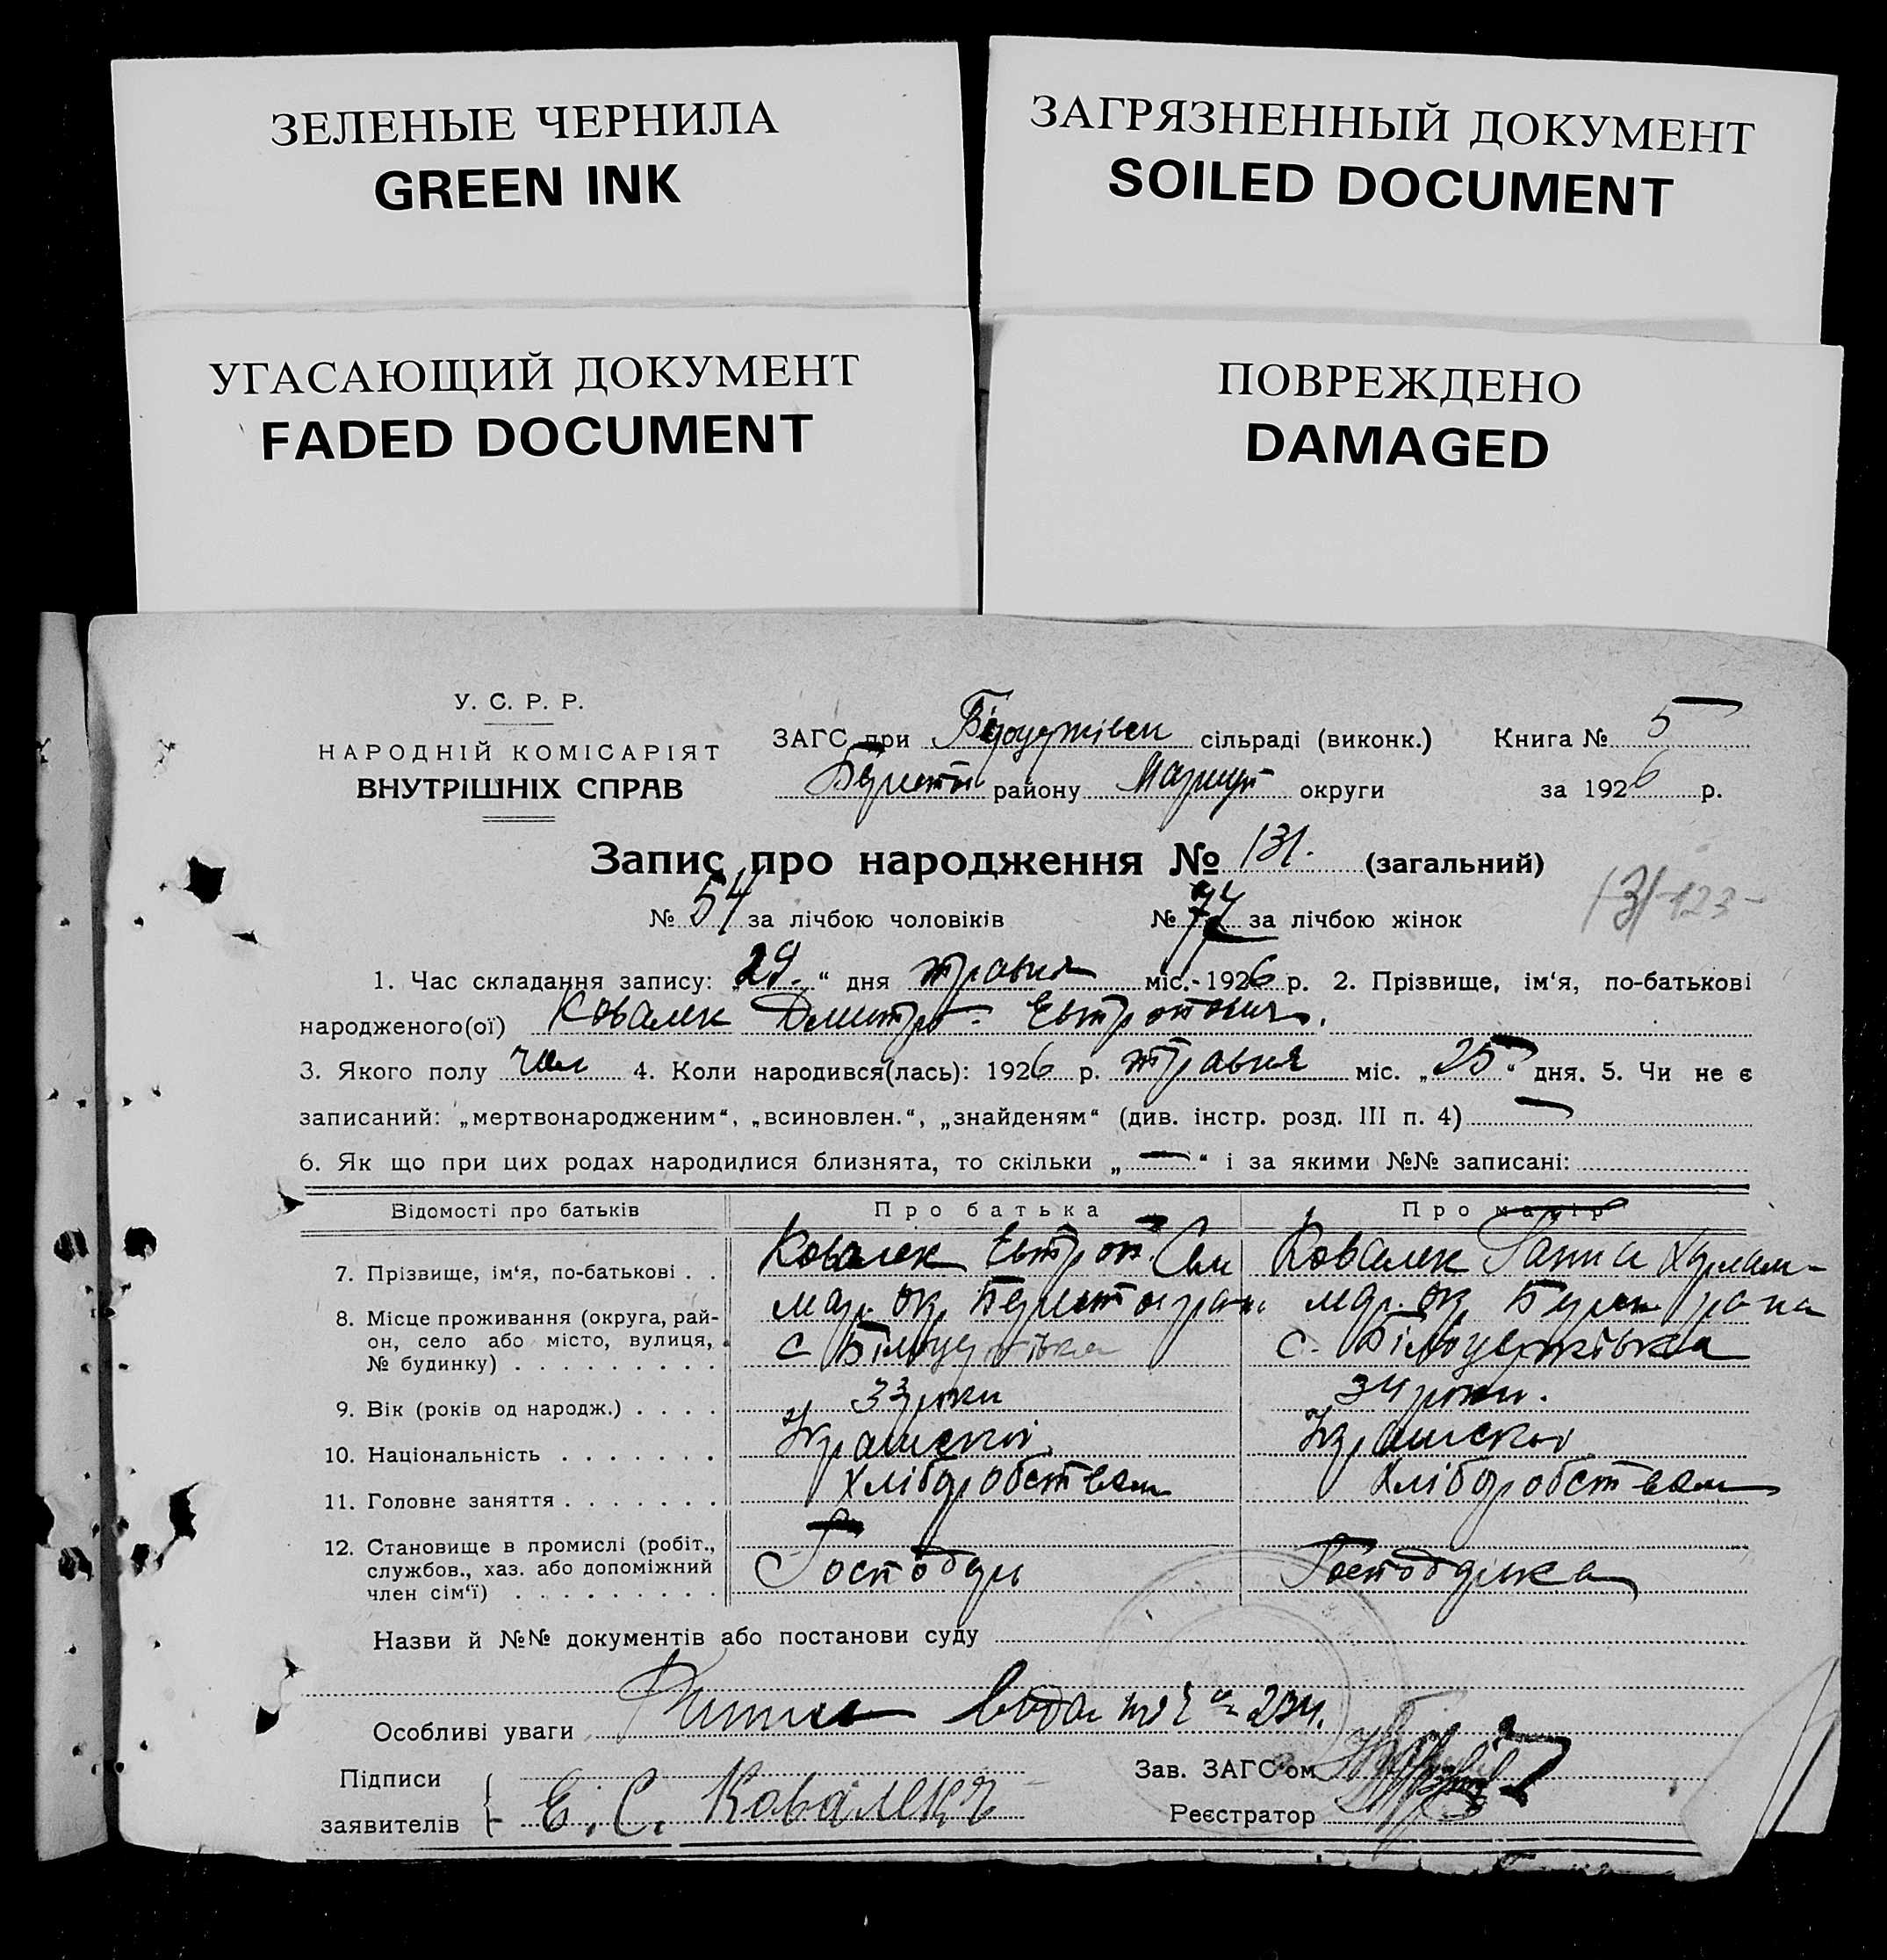 ЗЕЛЕНЫЕ ЧЕРНИЛА
GREEN INK
ЗАГРЯЗНЕННЫЙ ДОКУМЕНТ
SOILED DOCUMENT
УГАСАЮЩИЙ ДОКУМЕНТ
FADED DOCUMENT
ПОВРЕЖДЕНО
DAMAGED
У. С. Р. Р.
НАРОДНІЙ КОМІСАРІЯТ
ВНУТРІШНІХ СПРАВ
ЗАГС при сільраді (виконк.) Книга № 5
району округи за 1926 р.
Запис про народження № 131. (загальний)
131 123
№ 54 за лічбою чоловіків № 77 за лічбою жінок
1. Час складання запису: „29.“ дня травня міс.-1926 р. 2. Прізвище, ім‘я, по-батькові
народженого(ої) Ковалек Дмитро Евтропович.
3. Якого полу чол 4. Коли народився(лась): 1926 р. травня міс. „25“ дня. 5. Чи не є
записаний: „мертвонародженим“, „всиновлен.“, „знайденям“ (див. інстр. розд. III п. 4) —
6. Як що при цих родах народилися близнята, то скільки „—“ і за якими №№ записані:
Відомості про батьків Про батька Про матір
7. Прізвище, ім‘я, по-батькові . . Ковалек Евтроп. Сем Ковалек Ганна
8. Місце проживання (округа, рай- мар. ок. мар. ок.
он, село або місто, вулиця, с с.
№ будинку) . . . . . . . . .
9. Вік (років од народж.) . . . . 33 роки 34 роки.
10. Національність . . . . . . .
11. Головне заняття . . . . . . . Хліборобством Хліборобством
12. Становище в промислі (робіт.,
службов., хаз. або допоміжний Господарь Господарка
член сім‘ї) . . . . . . . . .
Назви й №№ документів або постанови суду
Особливі уваги
Підписи Зав. ЗАГС‘ом
заявителів Е. С. Ковалект Реєстратор